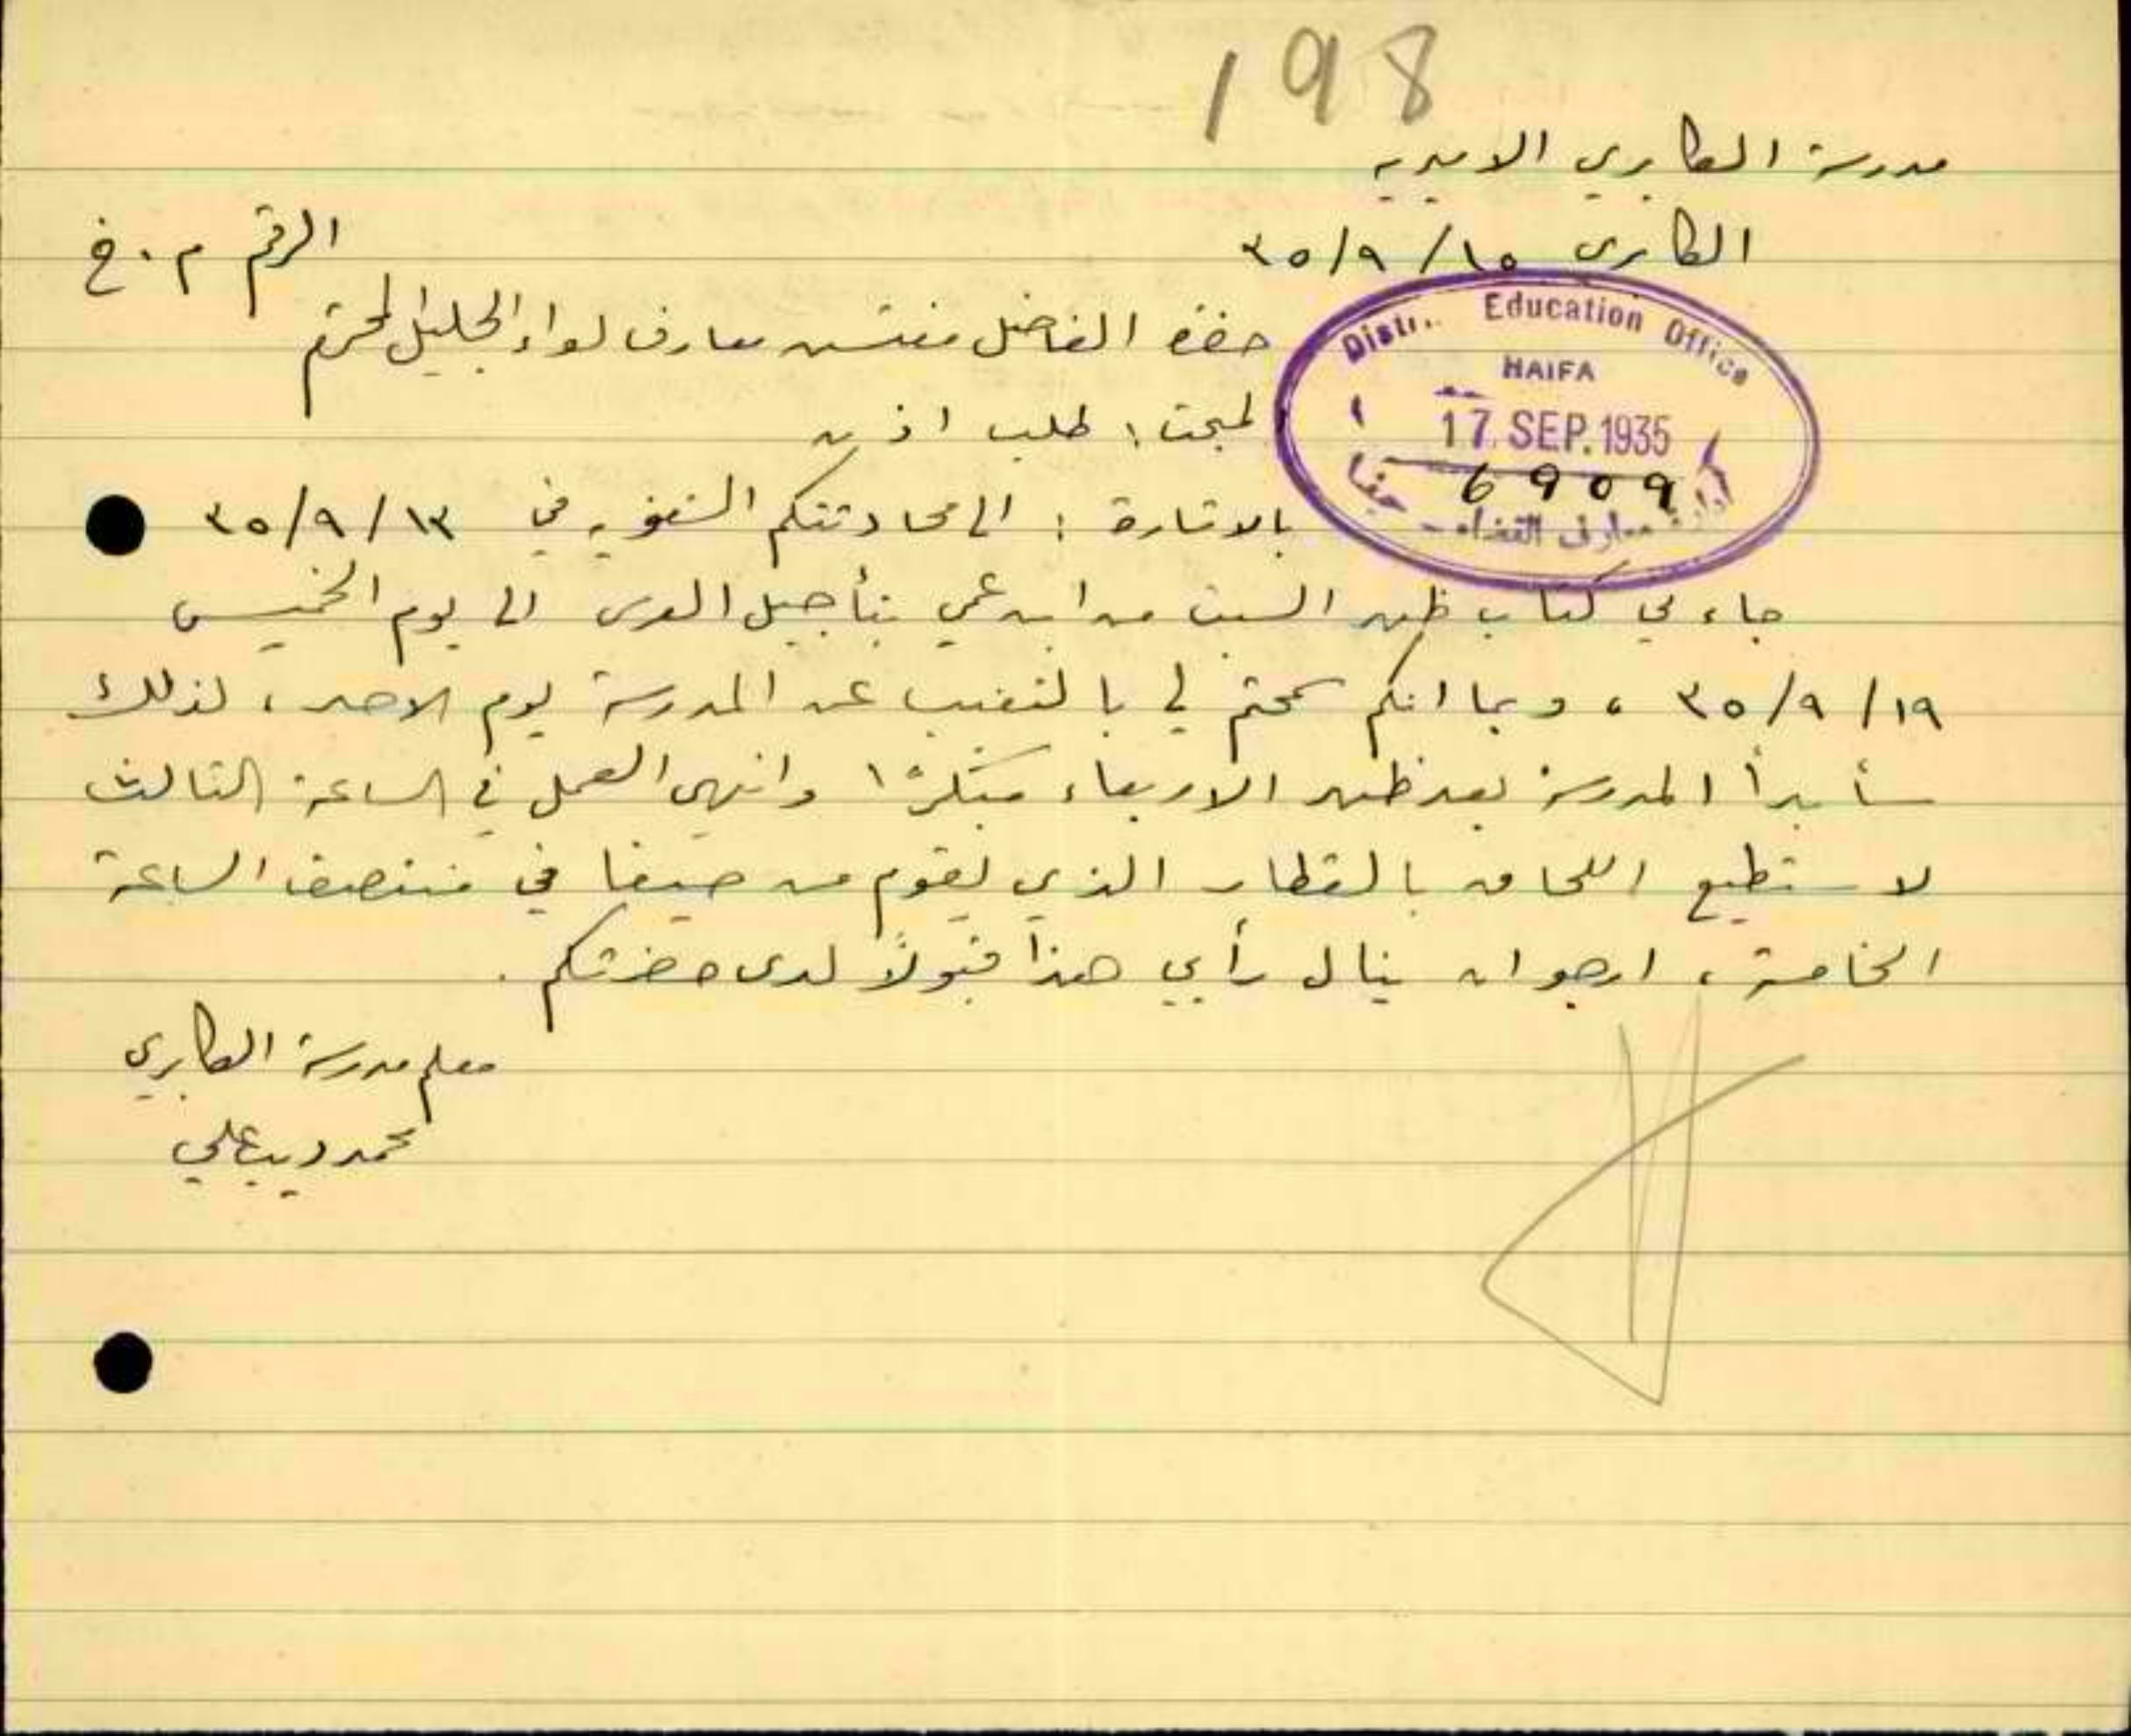 198
مدرسة الكابري الاميرية
الكابري ١٥/٩/٣٥
الرقم م.خ
حضرة الفاضل مفتش معارف لواء الجليل المحترم
Distr. Education Office
HAIFA
17 SEP. 1935
6909
ادارة معارف القضاء - حيفا
المبحث: طلب اذن
بالاشارة: الى محادثتكم الشفوية في ١٣/٩/٣٥
جاء لي كتاب ظهر السبت من ابن عمي بتأجيل العرس الى يوم الخميس
١٩/٩/٣٥، وبما انكم سمحتم لي بالتغيب عن المدرسة يوم الاحد، لذلك
سأبدأ المدرسة بعد ظهر الاربعاء مبكرًا وانهي العمل في الساعة الثالثة
لاستطيع اللحاق بالقطار الذي يقوم من حيفا في منتصف الساعة
الخامسة، ارجو ان ينال رأيي هذا قبولاً لدى حضرتكم.
معلم مدرسة الكابري
محمد ديب علي